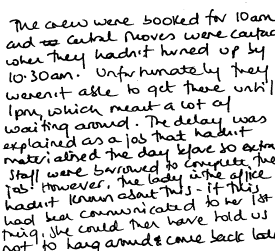 The crew were booked for 10am
and central moves were contac
when they hadn't turned up by
10.30am. Unfortunately they
weren't able to get there until
1pm, which meant a lot of
waiting around. The delay was
explained as a job that hadn't
materialised the day before so extra
staff were borrowed to complete the
job. However, the lady in the office
hadn't known about this - if this
had been communicated to her 1st
thing, she could then have told us
not to hang around & come back